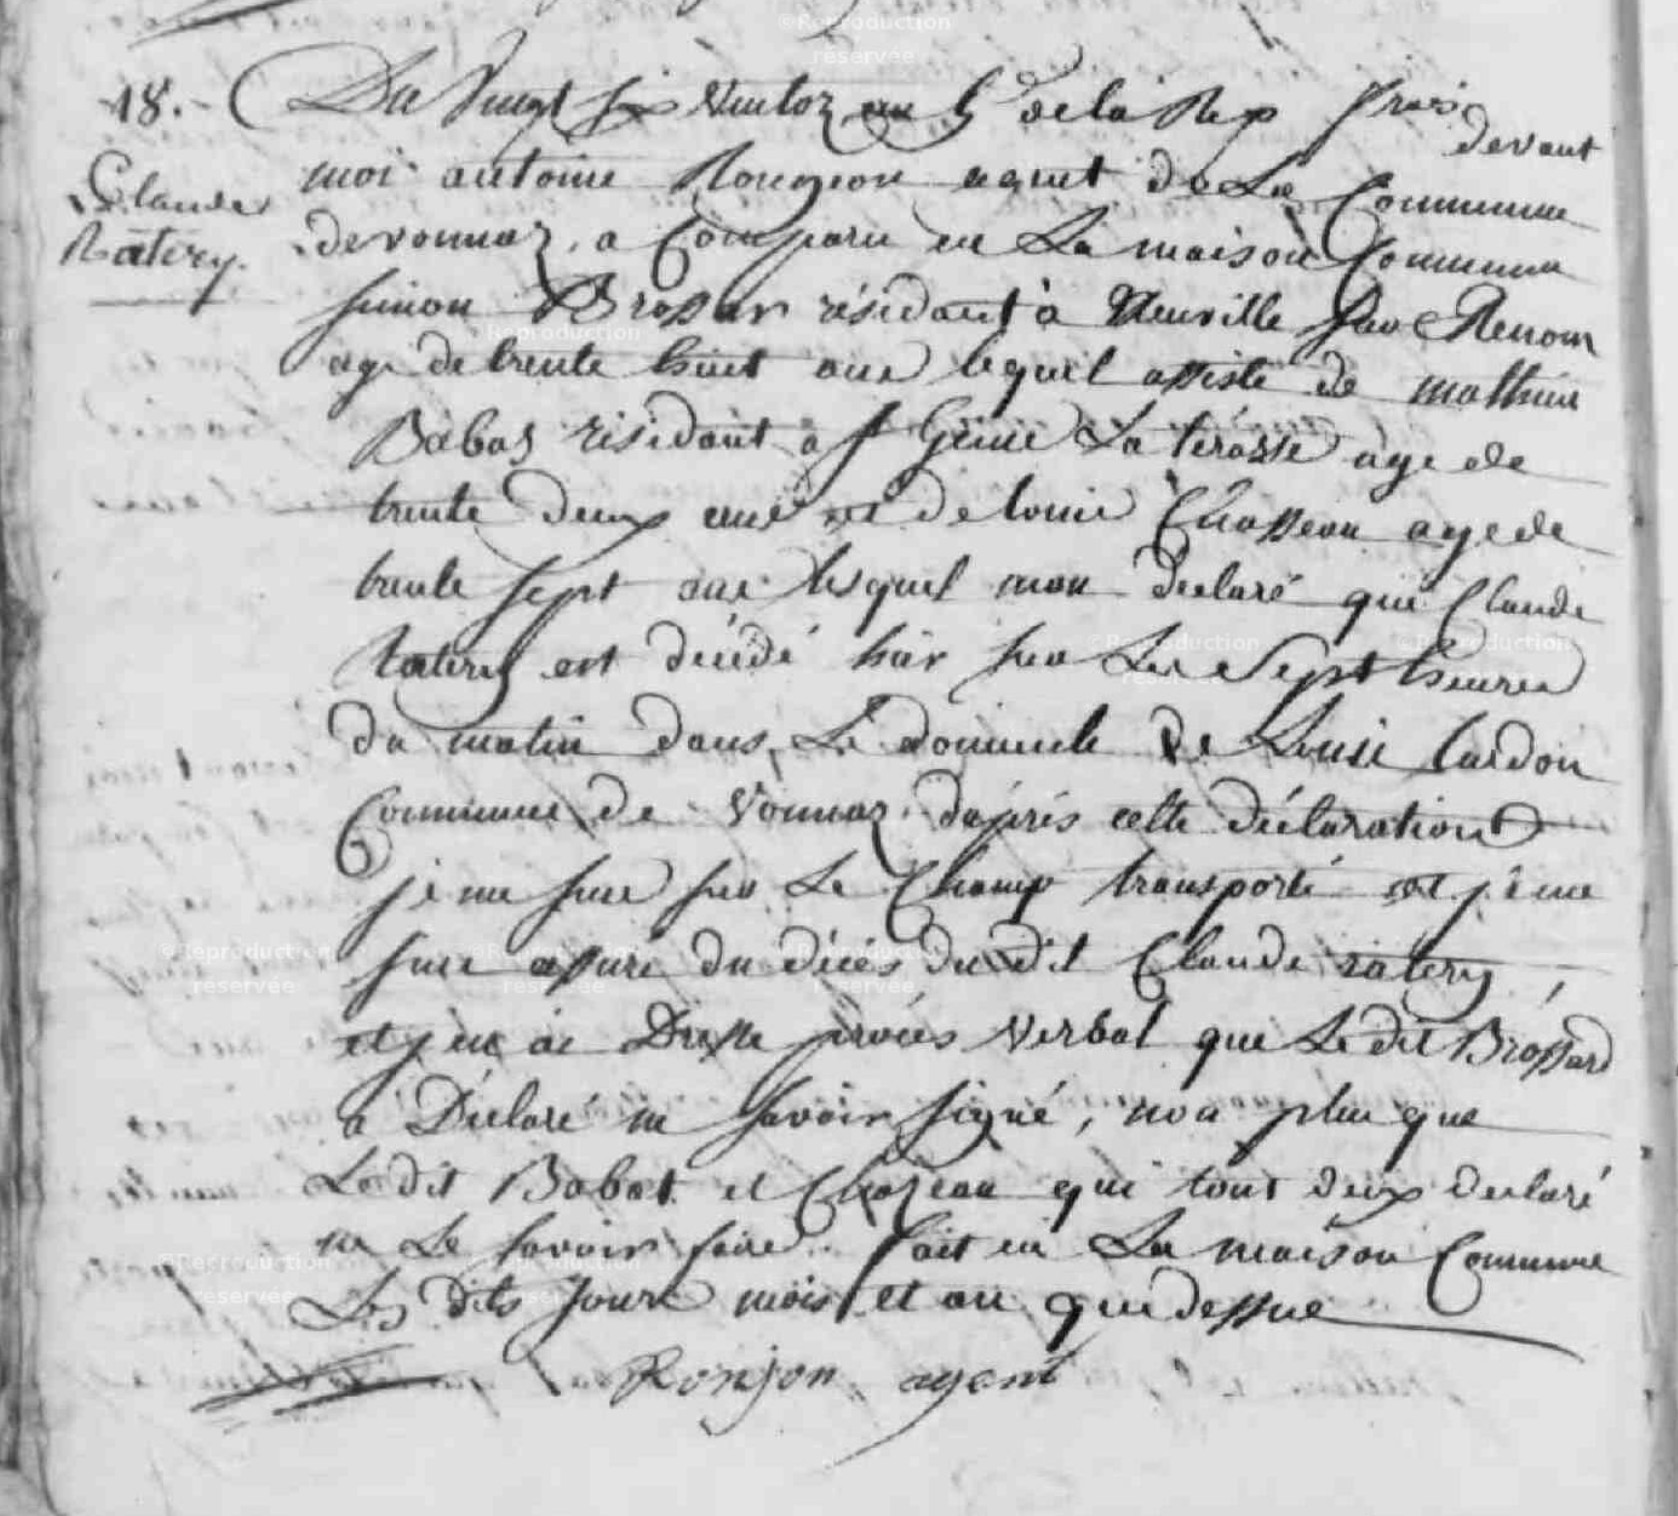 18. Du vingt six ventoz an 5 de la Rep frais devant
Claude Ratery.
moi antoine Rongeon agent de La Commune
de vonnaz, a Comparu en La maison Commune
simon Brossar résidant à Neuville sur Renom
age de trente huit ans lequel assisté de mathieu
Babas résidant à st Genie La térasse age de
trente deux ans et de louis Chasseau age de
trente sept ans lesquel mon declaré que Claude
Ratery est décédé hier sur Les Sept heures
du matin dans Le domicile de Cardon
Commune de Vonnaz. daprès cette déclaration
je me suis sur Le Champ transporté et je me
suis assuré du décès du dit Claude ratery,
et jen ai Dresse procès Verbal que Le dit Brossard
a Déclaré ne savoir signé, non plus que
Le dit Babat et Chazeau qui tout deux declaré
ne Le savoir faire. fait en La maison Commune
Les dits jour mois et an que dessus
Ronjon agent
©Reproduction réservée